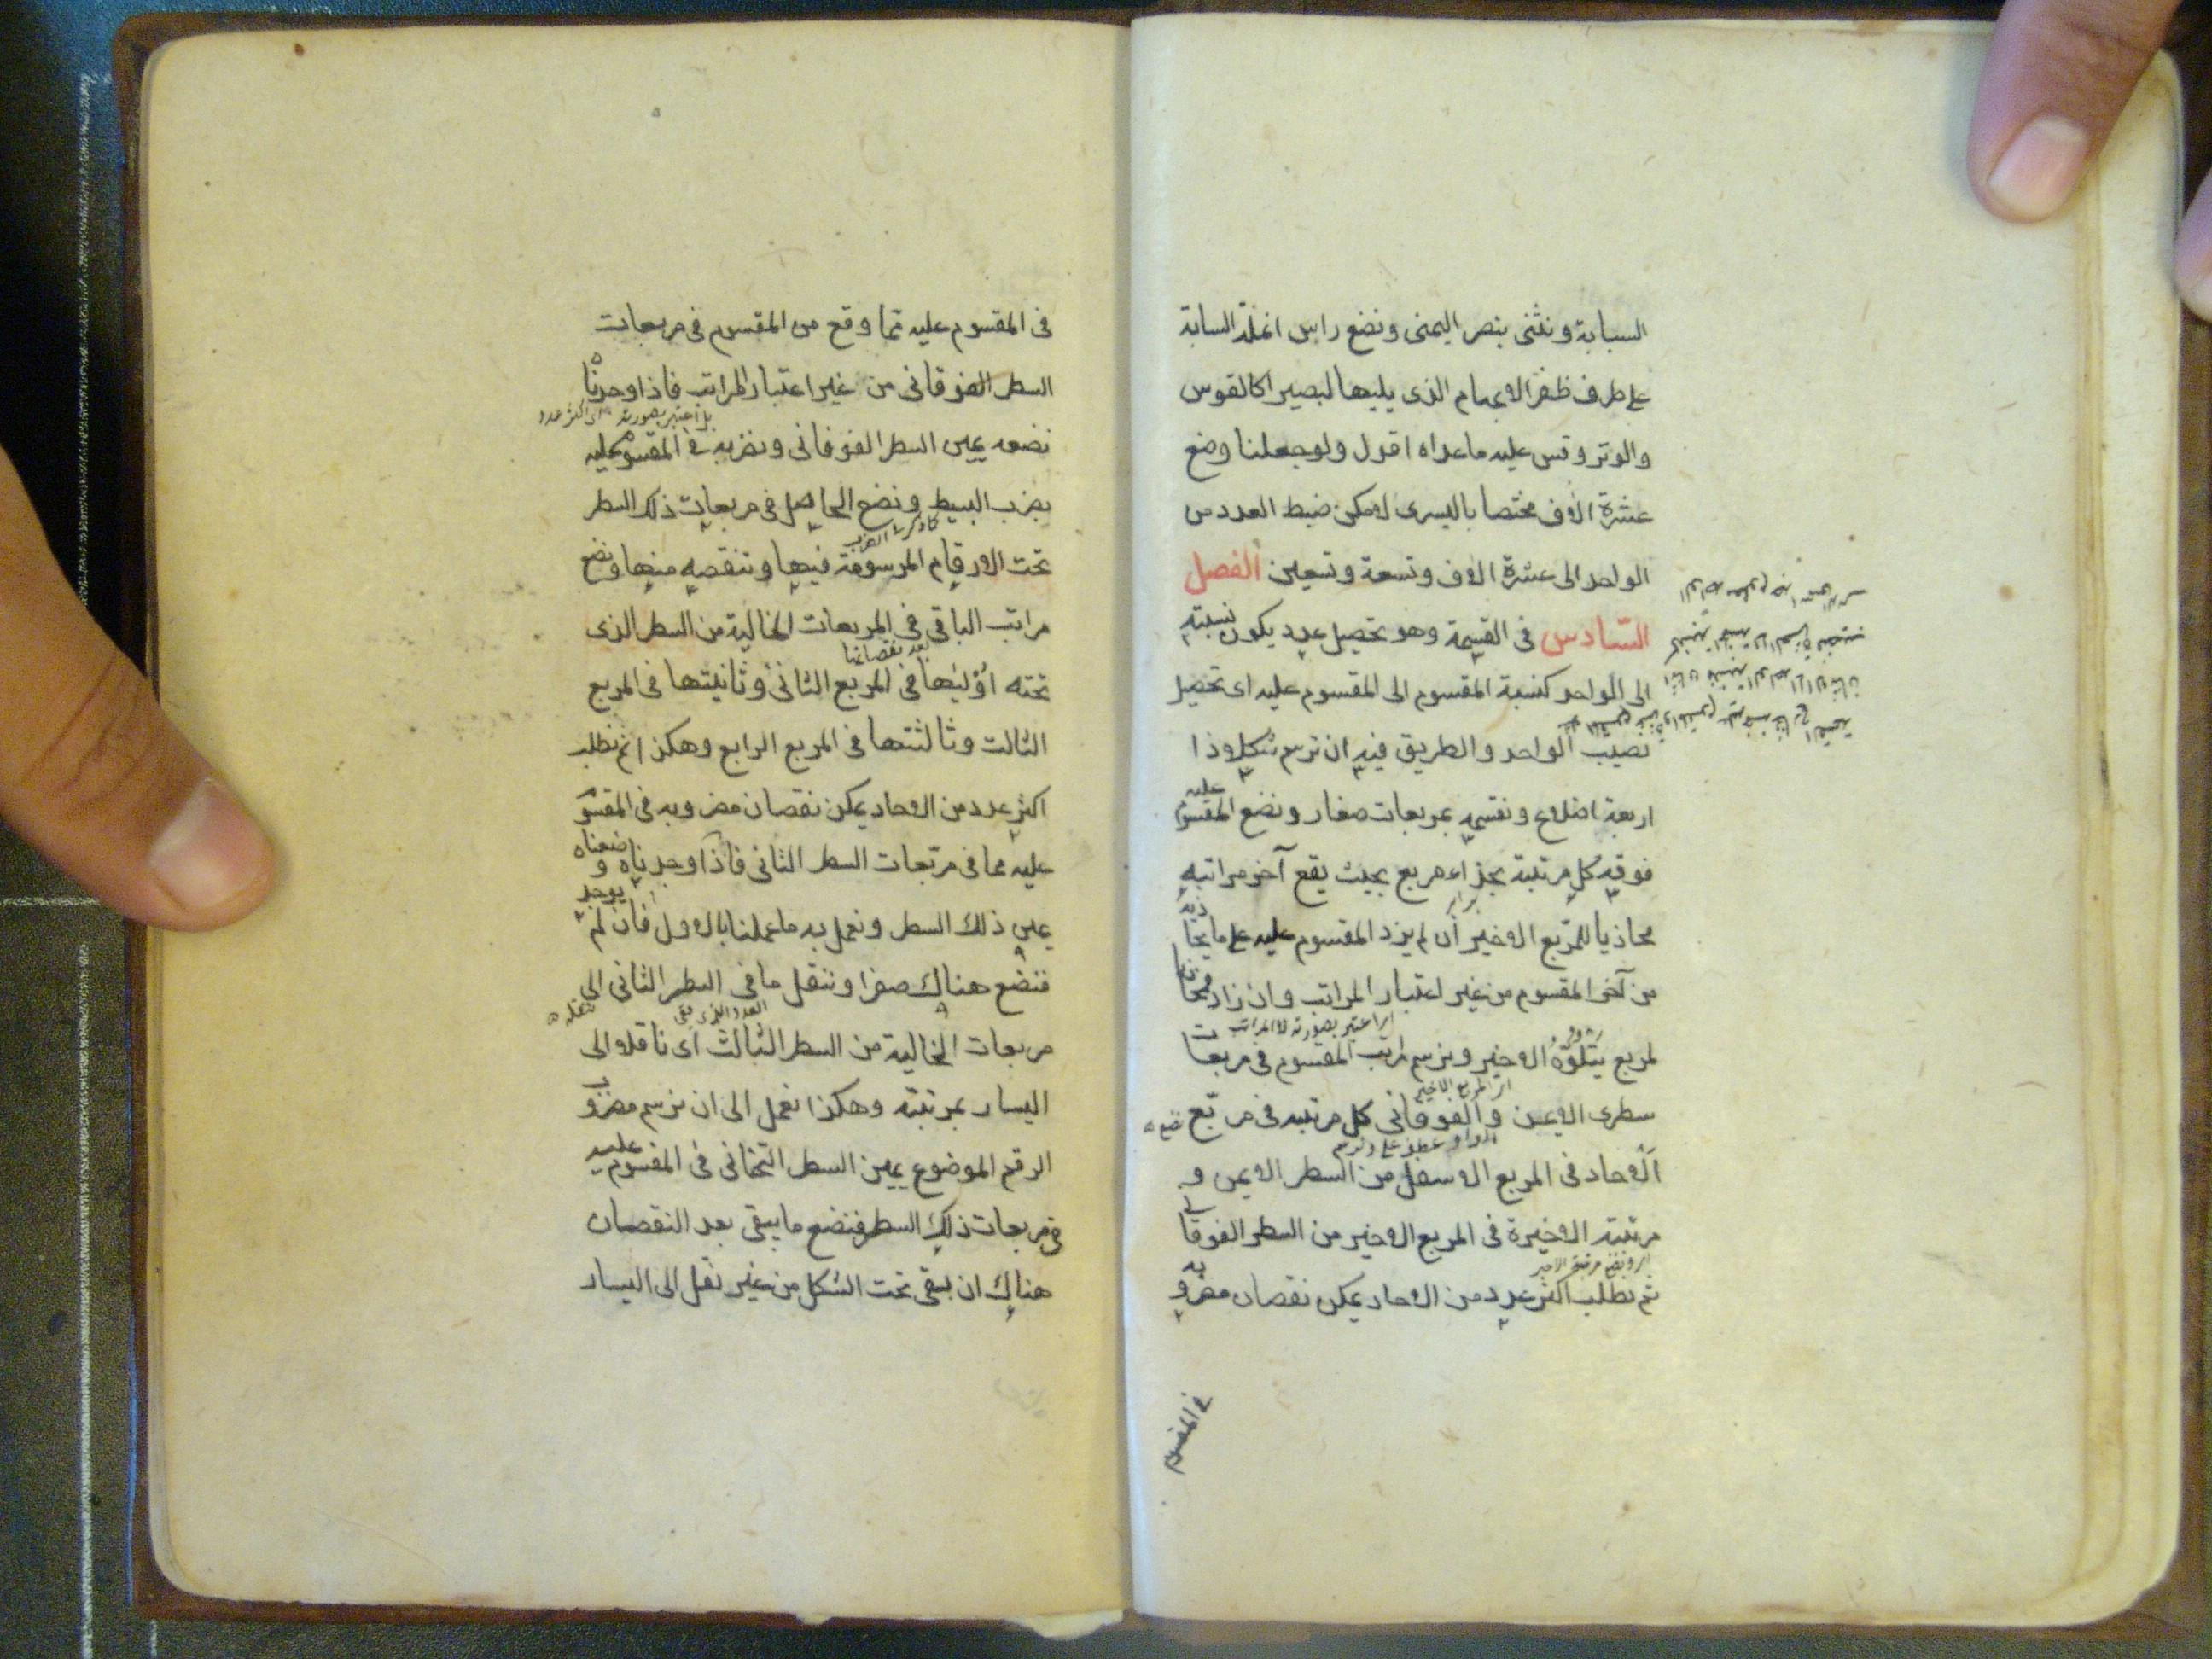 السبابة ونثنى بنصر اليمنى ونضع راس انملة السبابة
على طرف ظفر الابهام الذى يليها ليصيرا كالقوس
والوتر وقس عليه ماعداه اقول ولو جعلنا وضع
عشرة الاف مختصا باليسرى لامكن ضبط العدد من
الواحد الى عشرة الاف وتسعة وتسعين الفصل
السّادس فى القسمة وهو تحصيل عدد يكون نسبته
الى الواحد كنسبة المقسوم الى المقسوم عليه اى تحصيل
نصيب الواحد والطريق فيه ان نرسم شكلا ذا
اربعة اضلاع ونقسمه بمربعات صغار ونضع المقسوم عليه
فوقه كل مرتبة بحذاء مربع بحيث يقع آخر مراتبه
برابر
محاذيا للمربع الاخير ان لم يزد المقسوم عليه على ما يحاذيه
من آخر المقسوم من غير اعتبار المراتب وان زاد فمحاذيا
اى اعتبر بصورته لا المراتب
لمربع يتلوه الاخير ونرسم مراتب المقسوم فى مربعات
اى المربع الاخير
سطرى الايمن والفوقانى كل مرتبه فى مربع نضع
الواو عطف على ونرسم
الاحاد فى المربع الاسفل من السطر الايمن و
مرتبته الاخيرة فى المربع الاخير من السطر الفوقانى
ثم نطلب اكثر عدد من الاحاد يمكن نقصان مضروبه
فى المقسوم
فى المقسوم عليه مما وقع من المقسوم فى مربعات
السطر الفوقانى من غير اعتبار المراتب فاذا وجدناه
بل اعتبر بصورته اى اكثر عدد
نضعه يمين السطر الفوقانى ونضربه فى المقسوم عليه
بضرب البسيط ونضع الحاصل فى مربعات ذلك السطر
كما ذكر فى الضرب
تحت الارقام المرسومة فيها وتنقصه منها ونضع
مراتب الباقى فى المربعات الخالية من السطر الذى
بعد نقصانها
تحته اوليها فى المربع الثانى وثانيتها فى المربع
الثالث وثالثتها فى المربع الرابع وهكذا ثم نطلب
اكثر عدد من الاحاد يمكن نقصان مضروبه فى المقسوم
عليه مما فى مربعات السطر الثانى فاذا وجدناه وضعناه
يمين ذلك السطر ونعمل به ما عملنا بالاول فان لم يوجد
فنضع هناك صفرا وننقل ما فى السطر الثانى الى
العدد الذى بقى ننقله
مربعات الخالية من السطر الثالث اى ناقلا الى
اليسار بمرتبة وهكذا نعمل الى ان نرسم مضروب
الرقم الموضوع يمين السطر التحتانى فى المقسوم عليه
فى مربعات ذلك السطر فنضع ما يبقى بعد النقصان
هناك ان بقى تحت الشكل من غير نقل الى اليسار